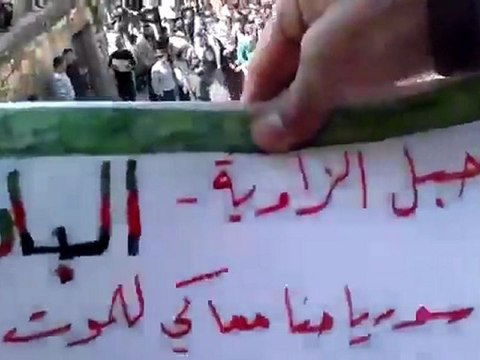 جبل الزاوية - البا
سوريا حنا معاكي للموت